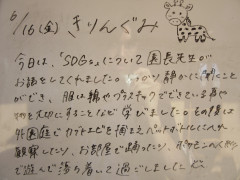 6/16(金) きりんぐみ
今日は、「SDGs」について園長先生が
お話をしてくれました。 静かに聞くこと
ができ、服は綿やプラスチックでできている
物を大切にすることなど学びました。その後は
外園庭でカブトエビを捕まえペットボトルに入れ
観察したり、お部屋で踊ったり、
で遊んで落ち着いて過ごしました